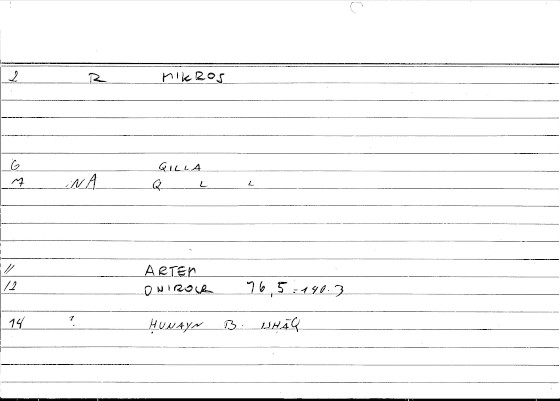 2 R MIKROS
6 QILLA
7 .NA Q L L
11 ARTEM
12 ONIROCR 76,5 = 140.3
14 ? ḤUNAYN B. ISḤĀQ